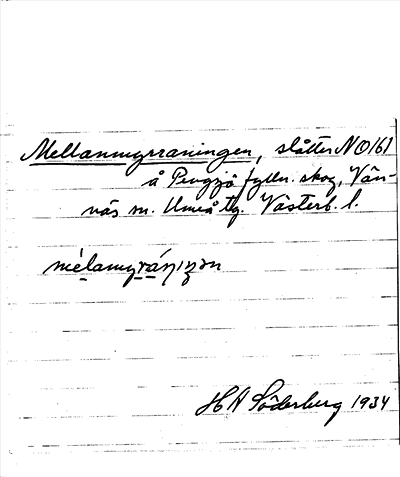 Mellanmyrraningen, slåtter NO161
å Pengsjö fylln. skog, Vän-
näs sn. Umeå tg. Västerb. l.
mèlamyrániŋən
H A Söderberg 1934